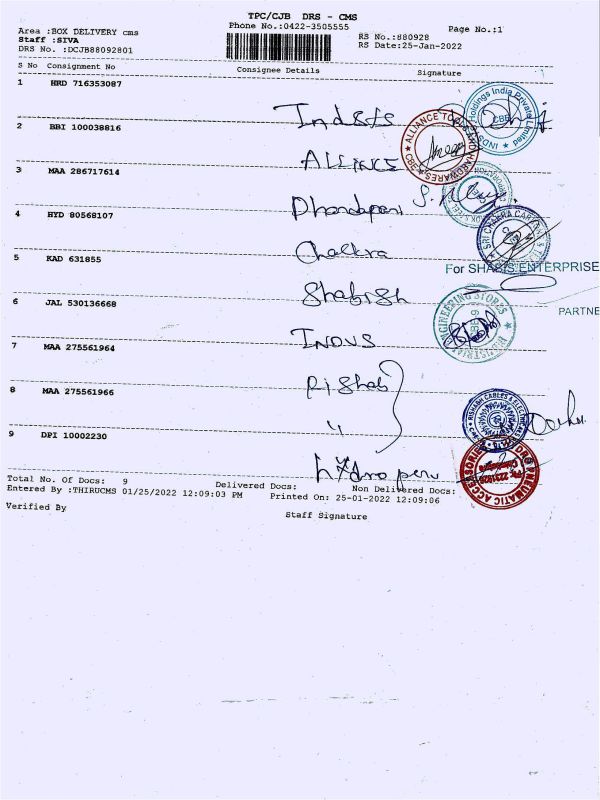 TPC/CJB DRS - CMS
Phone No.:0422-3505555
Page No.:1
Area :BOX DELIVERY cms
RS No.:880928
Staff :SIVA
RS Date:25-Jan-2022
DRS No. :DCJB88092801
S No Consignment No Consignee Details Signature
1 HRD 716353087
2 BBI 100038816
ALLIANCE TOOLS AND HARDWARES
3 MAA 286717614
Dhandapani
4 HYD 80568107
Chakra
SRI CHAKRA
5 KAD 631855
For SHABIS ENTERPRISE
Shabish
PARTNE
6 JAL 530136668
INDUS
INDUSTRIAL ENGINEERING STORES
7 MAA 275561964
Rishab
8 MAA 275561966
"
RISHAB CABLES & ELECTRICALS
9 DPI 10002230
PNEUMATIC ACCESSORIES
Total No. Of Docs: 9 Delivered Docs: Non Delivered Docs:
Entered By :THIRUCMS 01/25/2022 12:09:03 PM Printed On: 25-01-2022 12:09:06
Verified By
Staff Signature